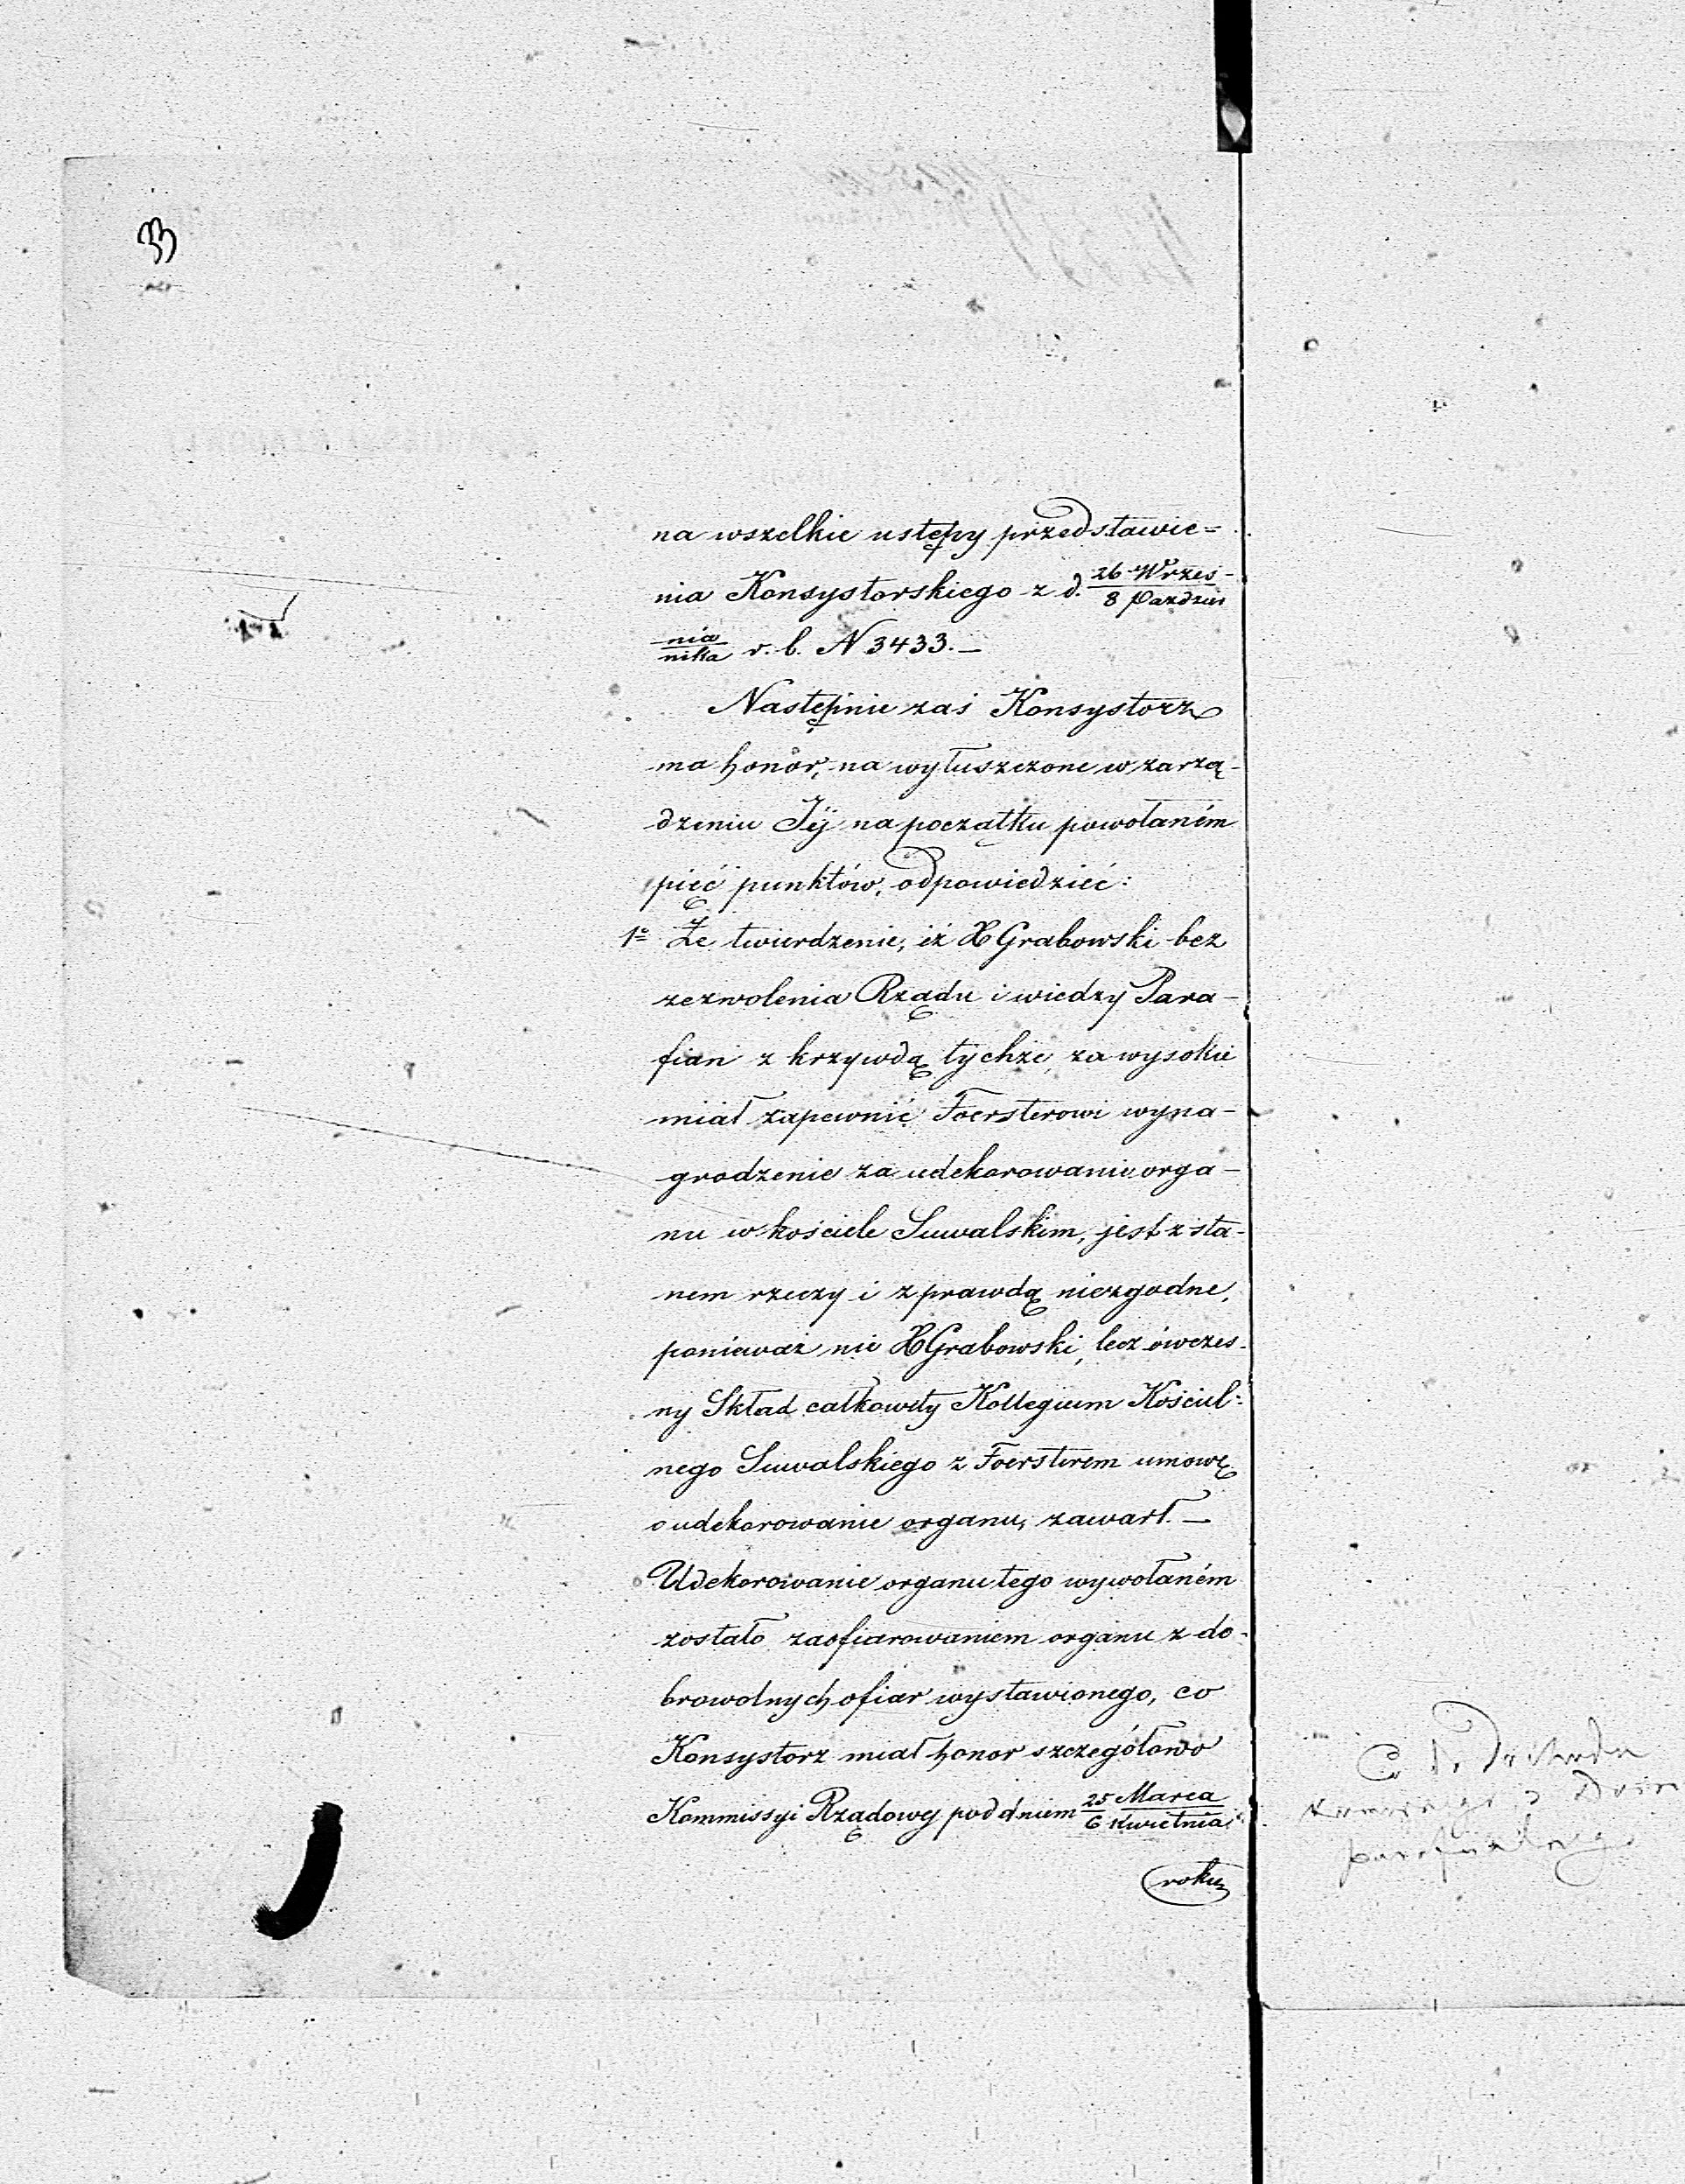 na wszelkie ustępy przedstawie=
nia Konsystorskiego z d. 26 Wrześ- / 8 Paździer
nia / nika r. b. N 3433. —
Następnie zaś Konsystorz
ma honor, na wyłuszczone w zarzą-
dzeniu Jéj na początku powołaném
pięć punktów, odpowiedzieć:
1o Że twierdzenie, iż X Grabowski bez
zezwolenia Rządu i wiedzy Para-
fian z krzywdą tychże, za wysokie
miał zapewnić Foersterowi wyna-
grodzenie za udekorowanie orga-
nu w kościele Suwalskim, jest z sta-
nem rzeczy i z prawdą niezgodne,
ponieważ nie X Grabowski, lecz ówczes-
ny Skład całkowity Kollegium Kościel:
nego Suwalskiego z Foersterem umowę
o udekorowanie organu, zawarł. —
Udekorowanie organu tego wywołaném
zostało zaofiarowaniem organu z do-
browolnych ofiar wystawionego, co
Konsystorz miał honor szczegółowo
Kommissyi Rządowej pod dniem 25 Marca / 6 Kwietnia
roku